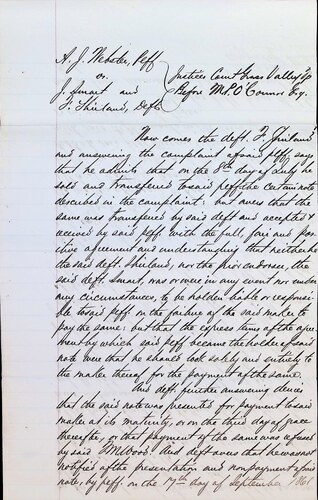 A. J. Webster, Plff
vs.
J. Smart and
F. Shirland, Defts
Justices Court Grass Valley Tp
Before M.P. O'Connor Esq.
Now comes the deft. F. Shirland
and answering the complaint of said plff, says
that he admits that on the 8th day of July he
sold and transferred to said plff the certain note
described in the complaint: but avers that the
same was transferred by said deft and accepted &
received by said plff with the full, fair and pos-
itive agreement and understanding that neither he
the said deft. Shirland, nor the prior endorser, the
said deft. Smart, was or were in any event nor under
any circumstances, to be holden liable or responsi-
ble to said plff. on the failure of the said maker to
pay the same: but that the express terms of the agree-
ment by which said plff became the holder of said
note were that he should look solely and entirely to
the maker thereof for the payment of the same.
And deft. further answering denies
that the said note was presented for payment to said
maker at its maturity, or on the third day of grace
thereafter, or that payment of the same was refused
by said Wood. And deft avers that he was not
notified of the presentation and nonpayment of said
note, by plff. on the 17th day of September 1861